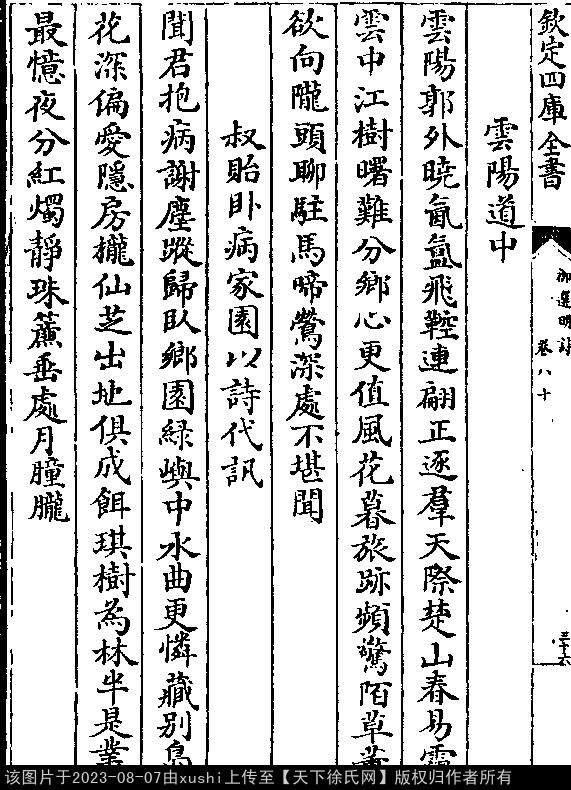 欽定四庫全書
御選明詩
卷八十
三十六
雲陽道中
雲陽郭外曉氤氲飛鞚連翩正逐羣天際楚山春易
雲中江樹曙難分鄉心更值風花暮旅跡頻驚陌草
欲向隴頭聊駐馬啼鶯深處不堪聞
叔貽卧病家園以詩代訊
聞君抱病謝塵蹤歸卧鄉園綠嶼中水曲更憐藏别島
花深偏愛隱房攏仙芝出地俱成餌琪樹為林半是叢
最憶夜分紅燭靜珠簾垂處月朣朧
该图片于2023-08-07由xushi上传至【天下徐氏网】版权归作者所有